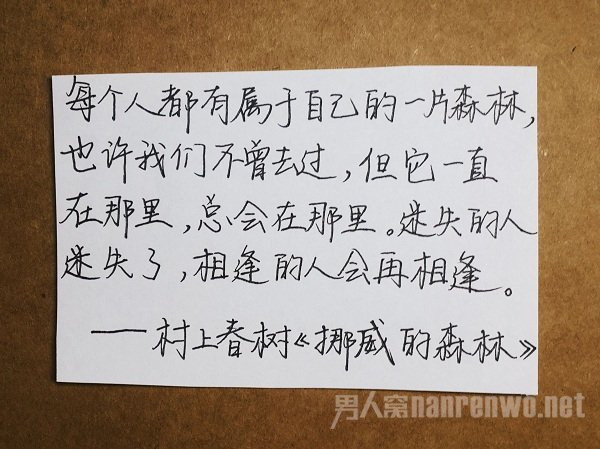 每个人都有属于自己的一片森林,
也许我们不曾去过,但它一直
在那里,总会在那里。迷失的人
迷失了,相逢的人会再相逢。
——村上春树《挪威的森林》
男人窝nanrenwo.net